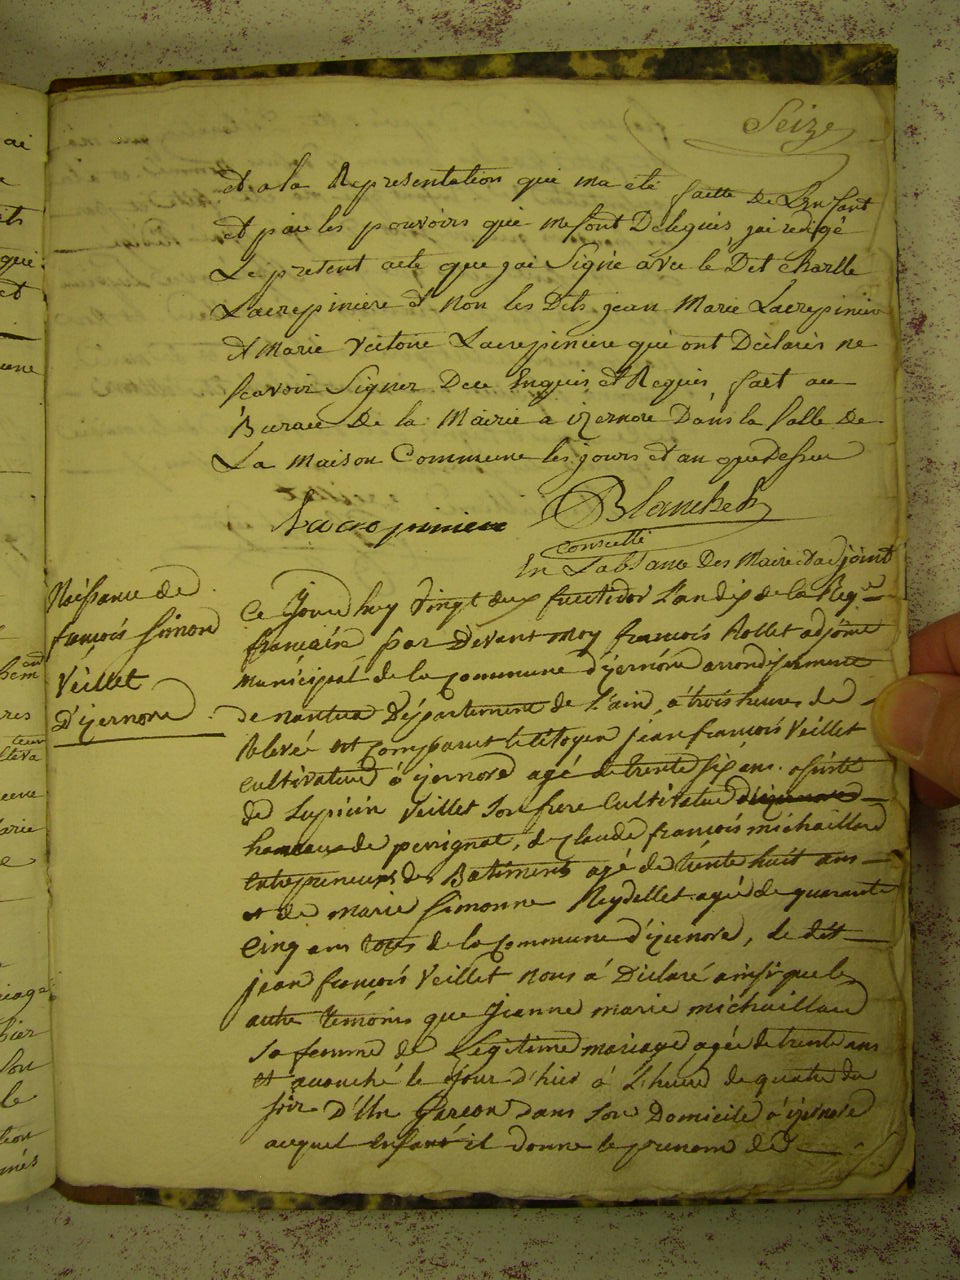 Seize
et a la Representation qui ma été faitte de Lenfant
et par les pouvoirs qui me sont Delegués jai redigé
Le present acte que jai Signé avec le Dit charlle
Lacrepiniere et non les Dits jean Marie Lacrepinier
et Marie Victoire Lacrepiniere qui ont Déclarés ne
scavoir Signer De ce Enquis et Requis fait au
Bureau De la Mairie a izernore Dans la Salle De
La Maison Commune les jours et an que dessus
Lacropiniere Blanchet
conseille
En Labsance Des Maire et adjoint
Naissance de
françois simon
Veillet
D'yzernore
Ce Jourd huy Vingt deux fructidor L'an dix de la Repe
françaisse par Devant moy françois Rollet adjoint
municipal de la commune d'yzernore arrondissement
de nantua Département de L'ain, a trois heures de
Relevée est comparut le citoyen jean françois Veillet
cultivateur à yzernore agé de trente six ans. assisté
de Lupicin Veillet son frere cultivateur
hameau de perrignat, de claude françois michaillard
entrepreneur des Batiments agé de trente huit ans
et de marie simonne Reydellet agée de quarante
cinq ans tous de la commune d'yzernore, le dit
jean françois Veillet nous à Déclaré ainsi que les
autre témoins que Jeanne marie michaillard
sa femme de Légitime mariage agée de trente ans
et acouché le jour d'hier à L'heure de quatre du
soir D'Un Garcon dans son Domicile à yzernore
auquel Enfant il donne le prenom de